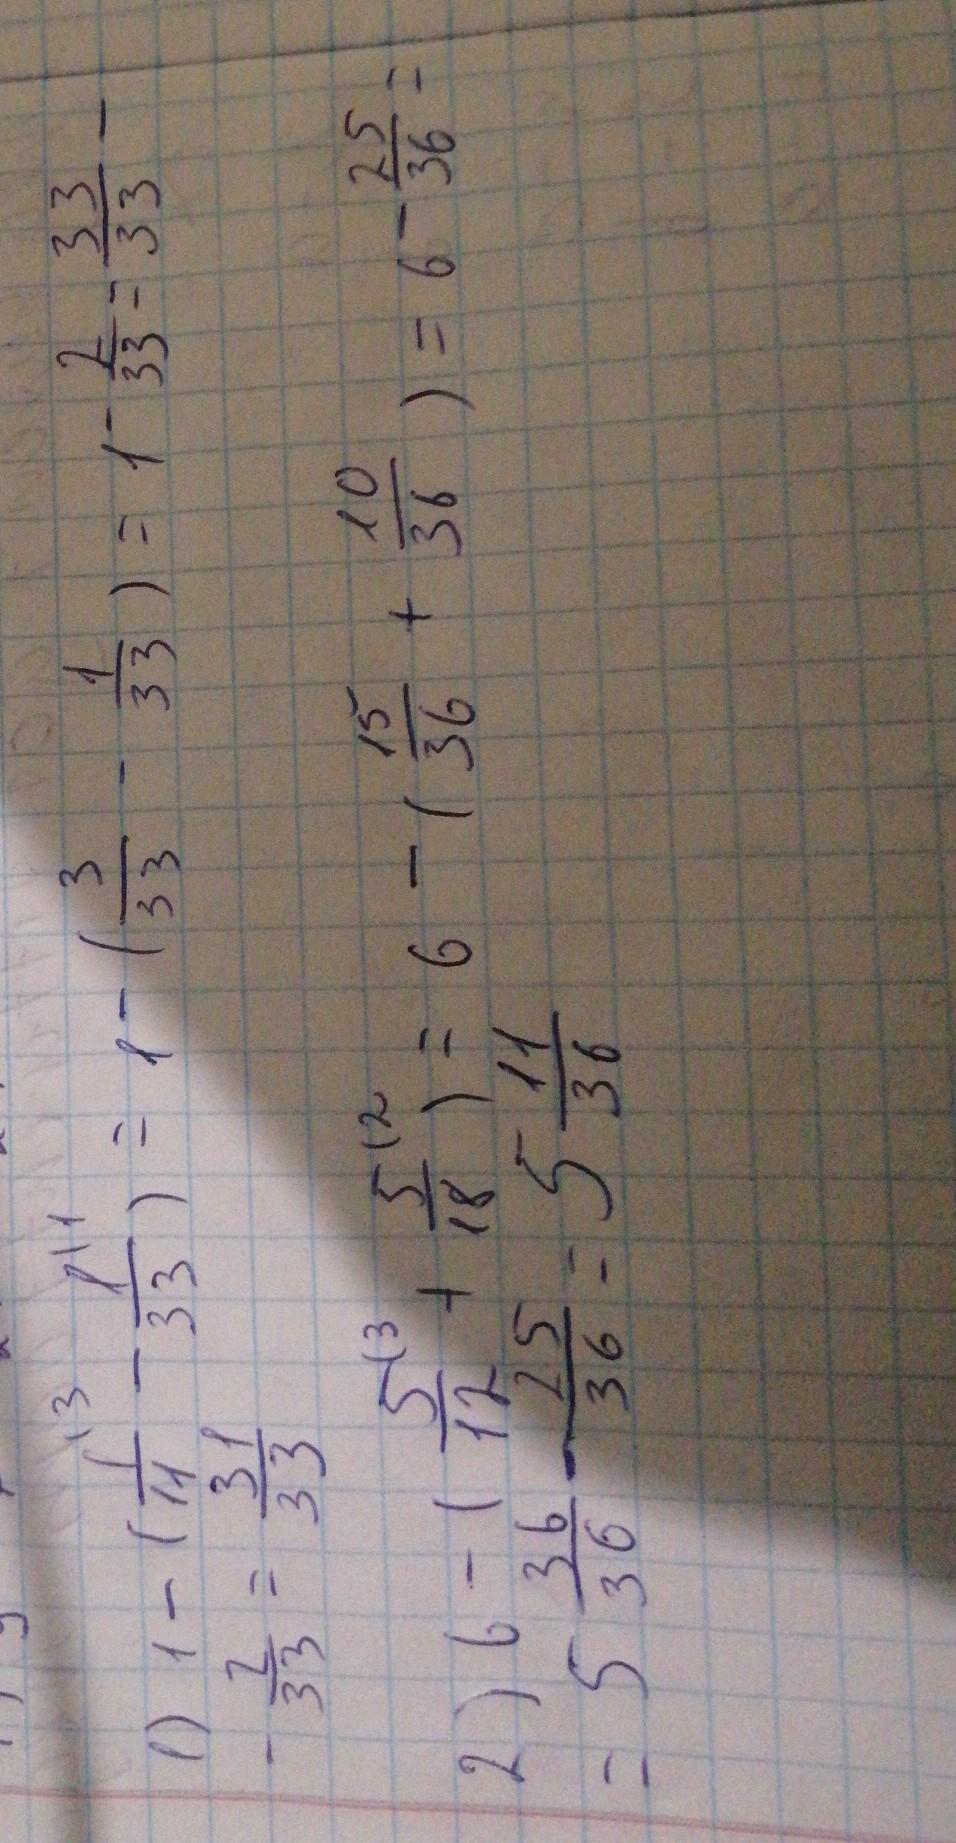 1) 1 - (1/11 ⁽³ - 1/33 ⁽¹) = 1 - (3/33 - 1/33) = 1 - 2/33 = 33/33 -
- 2/33 = 31/33
2) 6 - (5/12 ⁽³ + 5/18 ⁽²) = 6 - (15/36 + 10/36) = 6 - 25/36 =
= 5 36/36 - 25/36 = 5 11/36